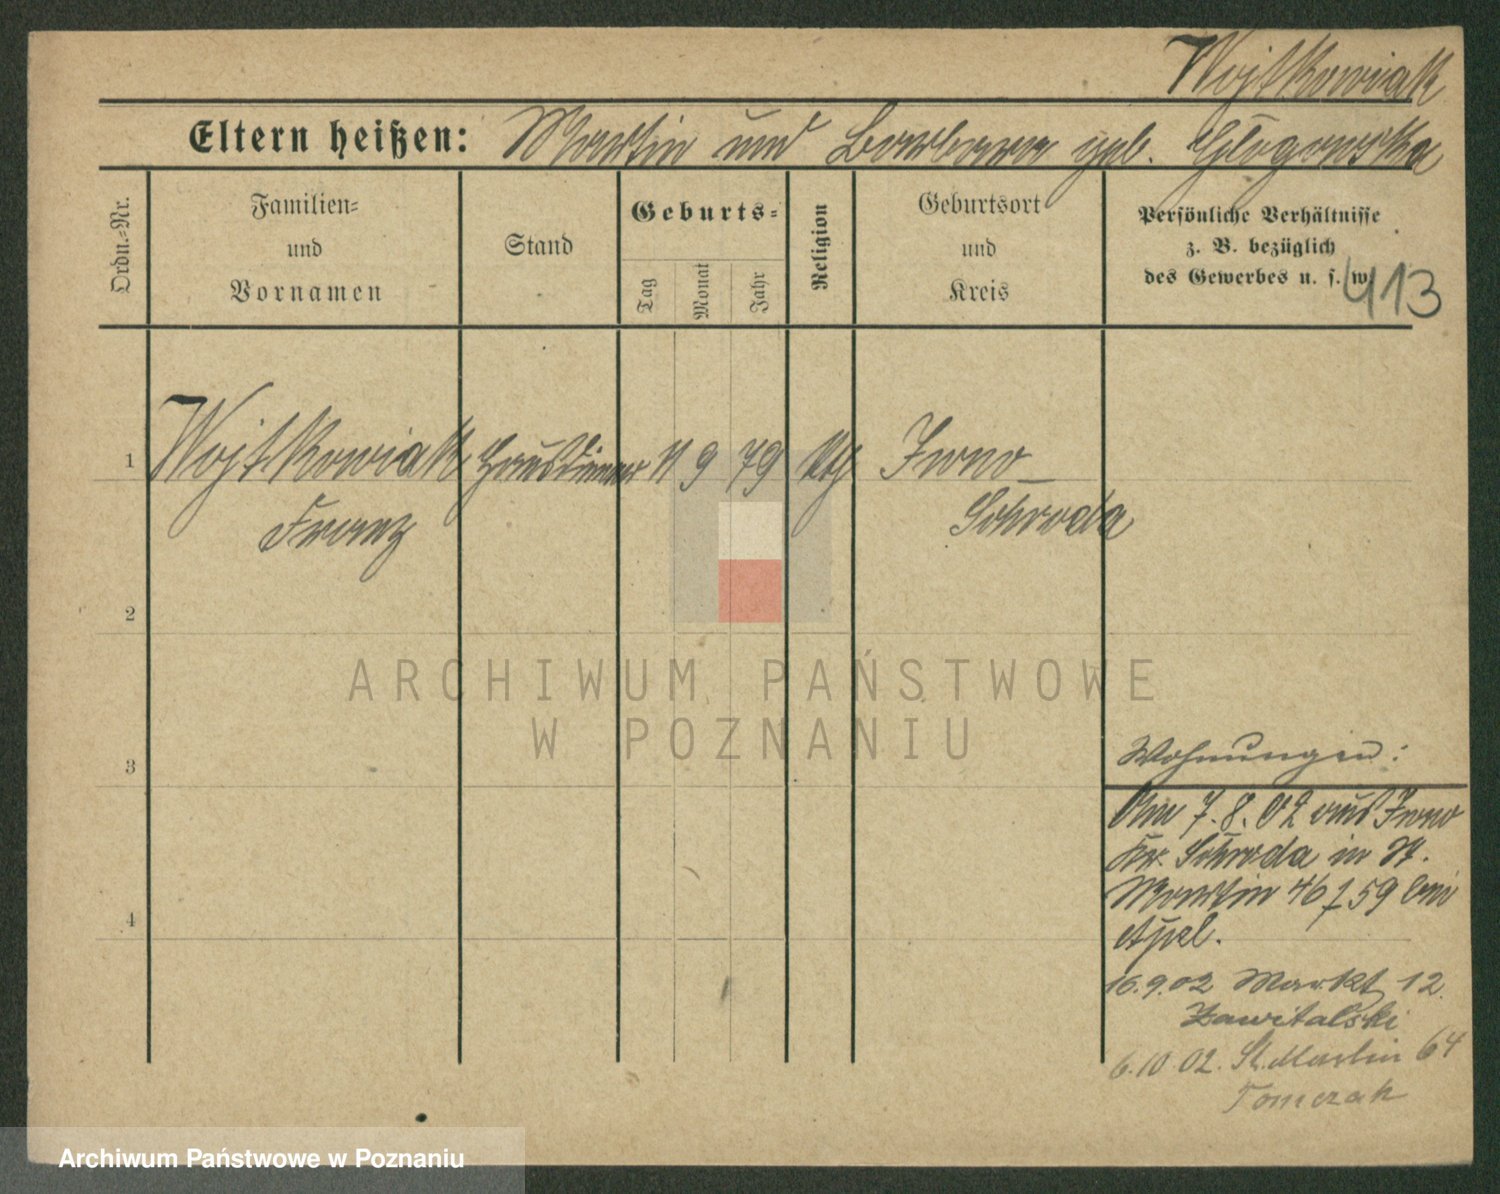 Wojtkowiak
Eltern heißen: Martin und Barbara geb. Glogowska
Ordn.-Nr.
Familien-
und
Vornamen
Stand
Geburts-
Tag
Monat
Jahr
Religion
Geburtsort
und
Kreis
Persönliche Verhältnisse
z. B. bezüglich
des Gewerbes u. s. w.
413
1 Wojtkowiak Hausdiener 11 9 79 kth Iwno
Franz Schroda
2
3
4
Wohnungen:
Am 7.8.02 aus Iwno
Kr. Schroda in St.
Martin 46/59 bei
Apel.
16.9.02 Markt 12
Zawitalski
6.10.02. St. Martin 64
Tomczak
ARCHIWUM PAŃSTWOWE
W POZNANIU
Archiwum Państwowe w Poznaniu